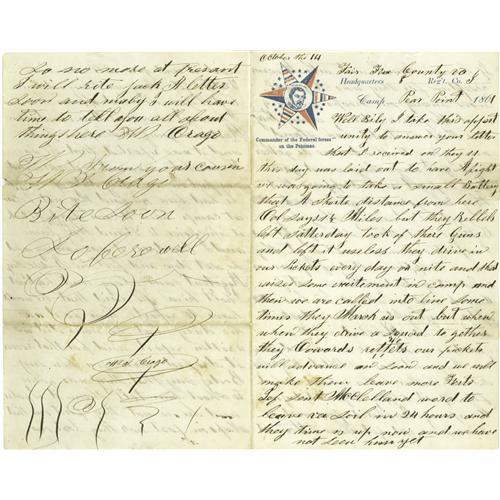 October the 14
Fair Fax County va
Headquarters Reg't. Co. J
Camp Pear Point 1861
Commander of the Federal forces
on the Potomac
Well Bily I take this oppert
unity to answer your letter
that I received on they
this day was laid out to have A fight
we was going to take a small Battery
that A Shorte distance from here
Col Says 18 Miles but they Rebbels
left Satterday took of there Guns
and left it useless they drive in
our Pickets every day or nite and that
raised some excitement in camp and
then we are called into line some
times they March us out but when
when they drive a squad to gether
they Cowards our pickets
will advance on soon and we will
make them leave more Forts
Mc Clelland word to
leave va Soil in 24 hours and
they time is up now and we have
not seen him yet
So no more at Present
I will rite Jack A letter
Soon and maby I will have
time to tell you all about
things here M Crago
From your cousin
Crago
Rite Soon
So fare well
Crago